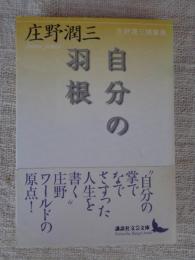 庄野潤三
庄野潤三随筆集
自分の
羽根
“自分の
掌で
なで
さすった
人生を
書く”
庄野
ワールドの
原点!
講談社文芸文庫